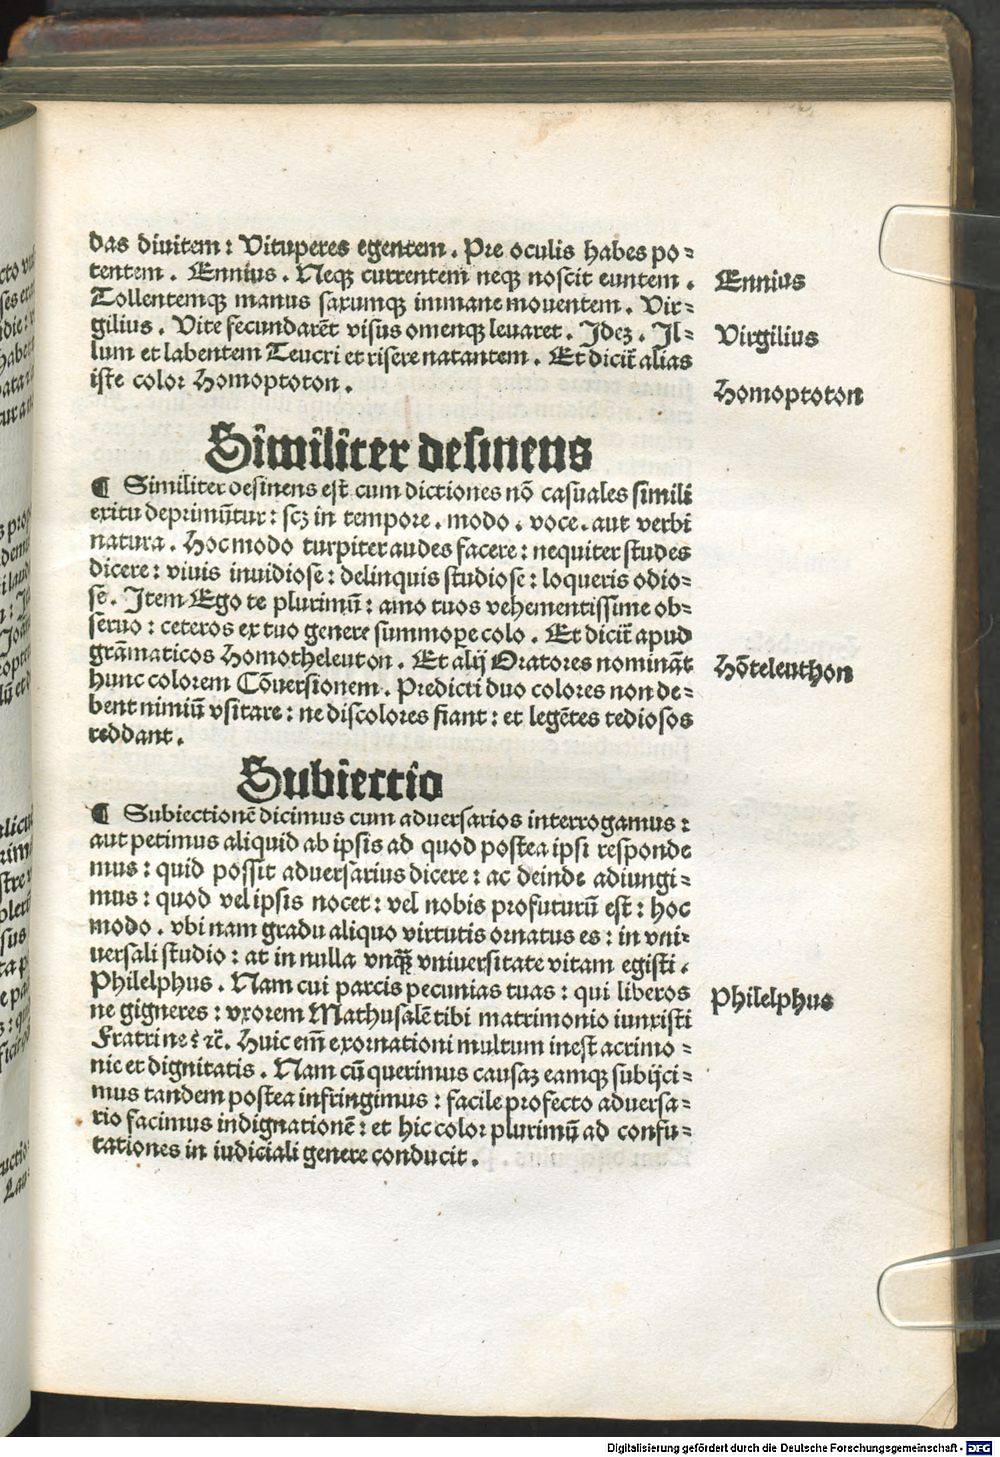 das diuitem: Vituperes egentem. Pre oculis habes po=
tentem. Ennius. Neqꝫ currentem neqꝫ noscit euntem.
Ennius
Tollentemqꝫ manus saxumqꝫ immane mouentem. Vir=
gilius. Vite fecundarēt visus omenqꝫ leuaret. Ideꝫ. Il=
Virgilius
lum et labentem Teucri et risere natantem. Et dicit̄ alias
iste color Homoptoton.
Homoptoton
Similiter desinens
¶ Similiter desinens est cum dictiones nō casuales simili
exitu deprimūtur: scꝫ in tempore. modo. voce. aut verbi
natura. Hoc modo turpiter audes facere: nequiter studes
dicere: viuis inuidiose: delinquis studiose: loqueris odio=
se. Item Ego te plurimū: amo tuos vehementissime ob=
seruo: ceteros ex tuo genere summope colo. Et dicit̄ apud
grāmaticos Homotheleuton. Et alij Oratores nomināt
Hōteleuthon
hunc colorem Cōuersionem. Predicti duo colores non de=
bent nimiū vsitare: ne discolores fiant: et legētes tediosos
reddant.
Subiectio
¶ Subiectionē dicimus cum aduersarios interrogamus:
aut petimus aliquid ab ipsis ad quod postea ipsi responde
mus: quid possit aduersarius dicere: ac deinde adiungi=
mus: quod vel ipsis nocet: vel nobis profuturū est: hoc
modo. vbi nam gradu aliquo virtutis ornatus es: in vni=
uersali studio: at in nulla vnqꝫ̄ vniuersitate vitam egisti.
Philelphus. Nam cui parcis pecunias tuas: qui liberos
Philelphus
ne gigneres: vxorem Mathusalē tibi matrimonio iunxisti
Fratri ne: ⁊c̄. Huic em̄ exornationi multum inest acrimo=
nie et dignitatis. Nam cū querimus causaꝫ eamqꝫ subijci=
mus tandem postea infringimus: facile profecto aduersa=
rio facimus indignationē: et hic color plurimū ad confu=
tationes in iudiciali genere conducit.
Digitalisierung gefördert durch die Deutsche Forschungsgemeinschaft - DFG